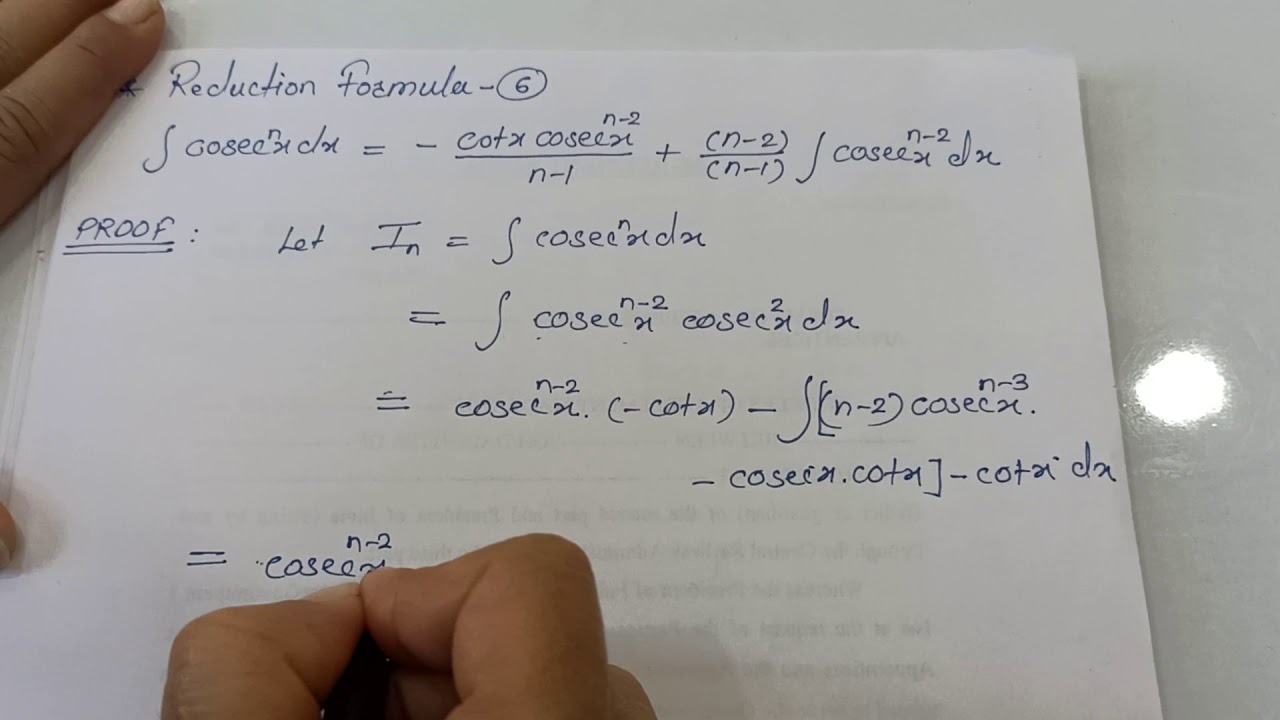 * Reduction Formula - ⑥
∫ cosecⁿx dx = - cotx cosecⁿ⁻²x / n-1 + (n-2)/(n-1) ∫ cosecⁿ⁻²x dx
PROOF : Let Iₙ = ∫ cosecⁿx dx
= ∫ cosecⁿ⁻²x cosec²x dx
= cosecⁿ⁻²x . (-cotx) - ∫[(n-2) cosecⁿ⁻³x .
- cosecx . cotx] - cotx dx
= cosecⁿ⁻²x